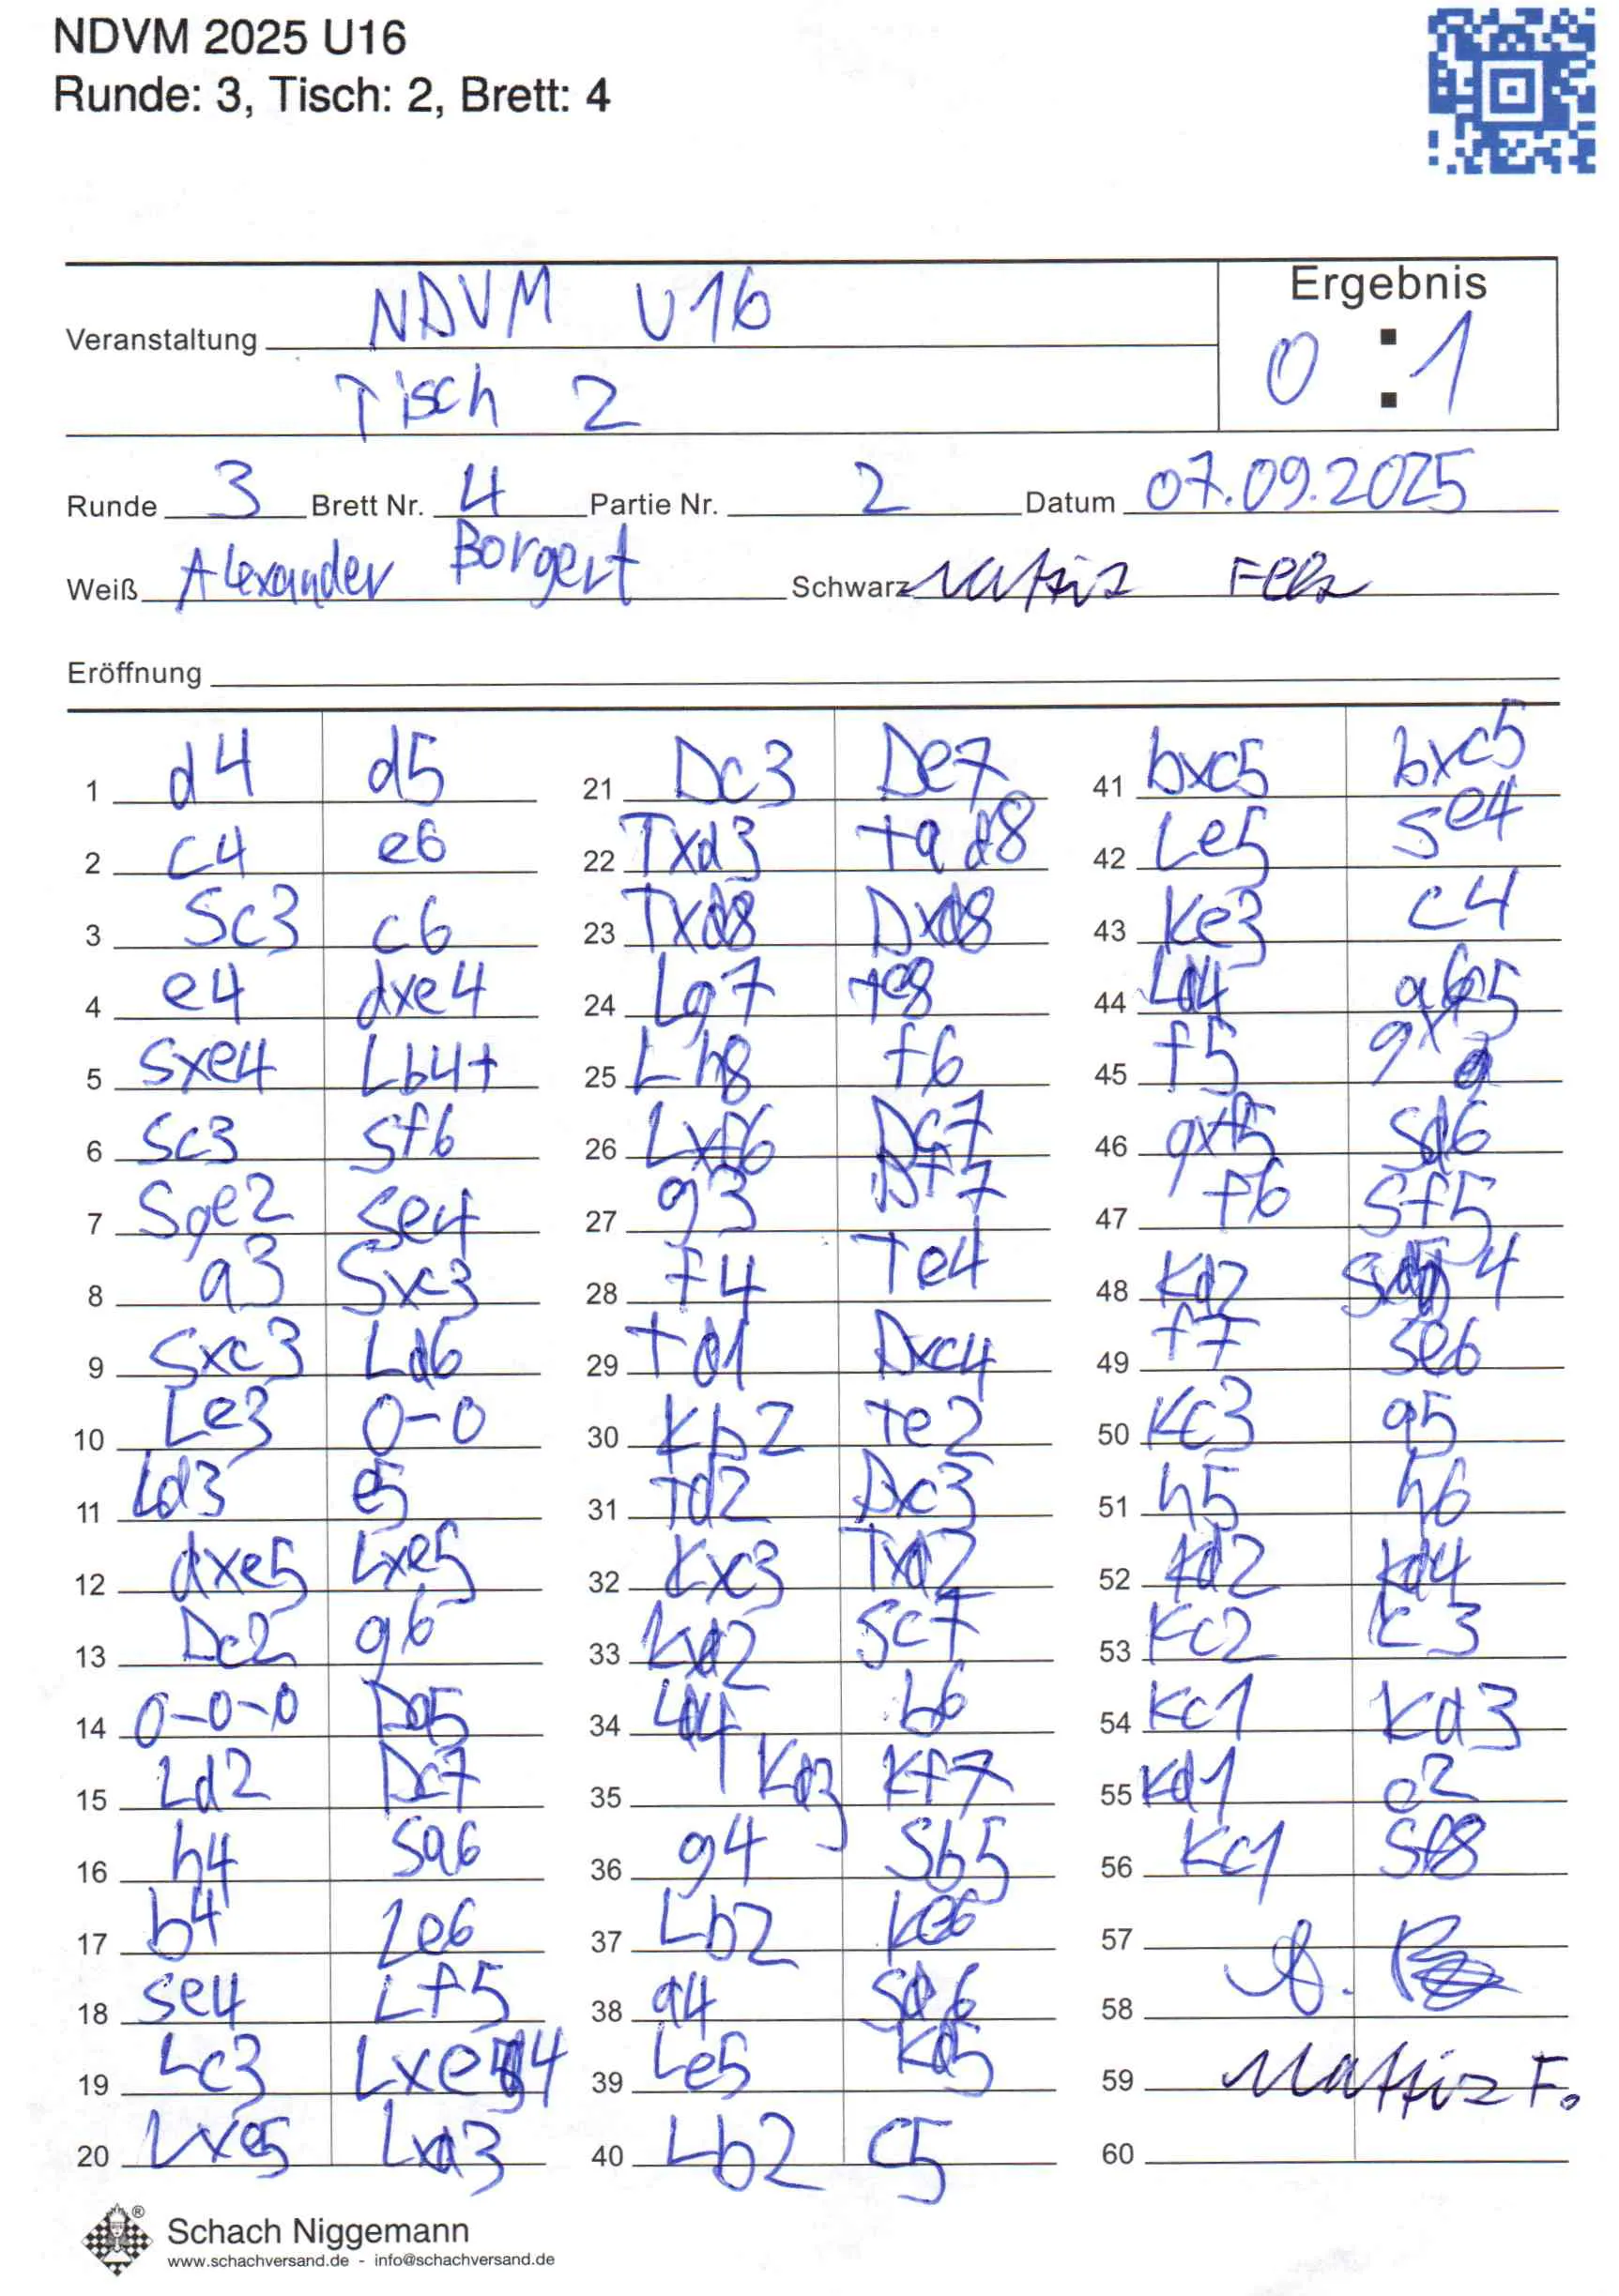 NDVM 2025 U16
Runde: 3, Tisch: 2, Brett: 4
Veranstaltung NDVM U16
Tisch 2
Ergebnis
0 : 1
Runde 3 Brett Nr. 4 Partie Nr. 2 Datum 07.09.2025
Weiß Alexander Borgert Schwarz Mattis
Eröffnung
1 d4 d5
2 c4 e6
3 Sc3 c6
4 e4 dxe4
5 Sxe4 Lb4+
6 Sc3 Sf6
7 Sge2 Se4
8 a3 Sxc3
9 Sxc3 Ld6
10 Le3 0-0
11 Ld3 e5
12 dxe5 Lxe5
13 Dc2 g6
14 0-0-0 Da5
15 Ld2 Dc7
16 h4 Sa6
17 b4 Le6
18 Se4 Lf5
19 Lc3 Lxe4
20 Lxe5 Lxd3
21 Dc3 De7
22 Txd3 Tad8
23 Txd8 Dxd8
24 Lg7 Te8
25 Lh8 f6
26 Lxf6 Dc7
27 g3 Df7
28 f4 Te4
29 Td1 Dxc4
30 Kb2 Te2
31 Td2 Dxc3
32 Kxc3 Txd2
33 Kxd2 Sc7
34 Ld4 b6
35 Kd3 Kf7
36 g4 Sb5
37 Lb2 Ke6
38 a4 Sd6
39 Le5 Kd5
40 Lb2 c5
41 bxc5 bxc5
42 Le5 Se4
43 Ke3 c4
44 Ld4 a5
45 f5
46 gxf5 Sd6
47 f6 Sf5
48 Kd2 Sxd4
49 f7 Se6
50 Kc3 g5
51 h5 h6
52 Kd2 Kd4
53 Kc2 c3
54 Kc1 Kd3
55 Kd1 c2
56 Kc1 Sf8
57
58
59 Mattis F.
60
Schach Niggemann
www.schachversand.de - info@schachversand.de